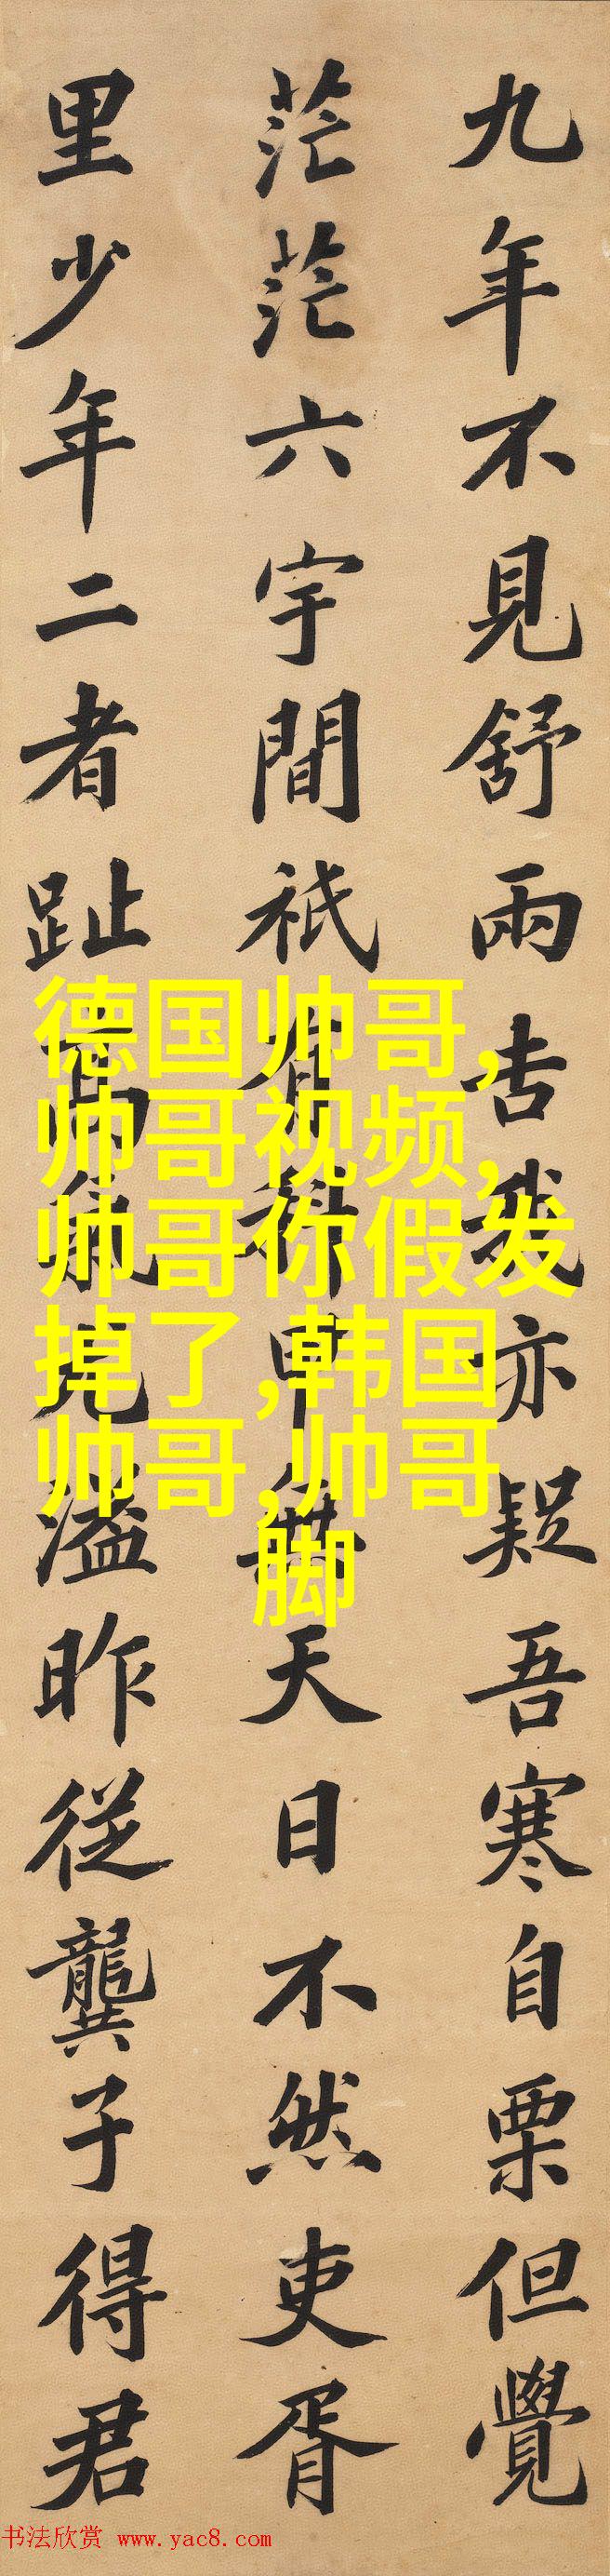 九年不見舒雨吉我亦疑吾寒自栗但覺
茫茫六宇間祇有科甲無天日不然吏胥
里少年二者趾高氣先溢昨從龔子得君
德国帅哥,
帅哥视频,
帅哥你假发
掉了,韩国
帅哥,帅哥
脚
书法欣赏 www.yac8.com